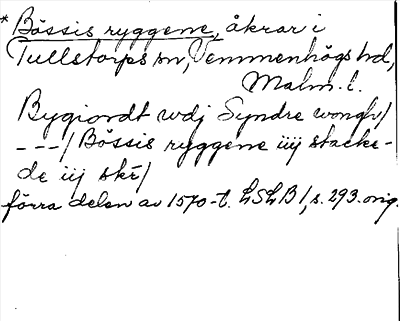 * Bössis ryggene, åkrar i
Tullstorps sn, Vemmenhögs hd,
Malm. l.
Bygiordt udj Syndre wongh/
---/ Bössis ryggene iiij stacke-
de iij ske/
förra delen av 1570-t. LSLB 1, s. 293. orig.